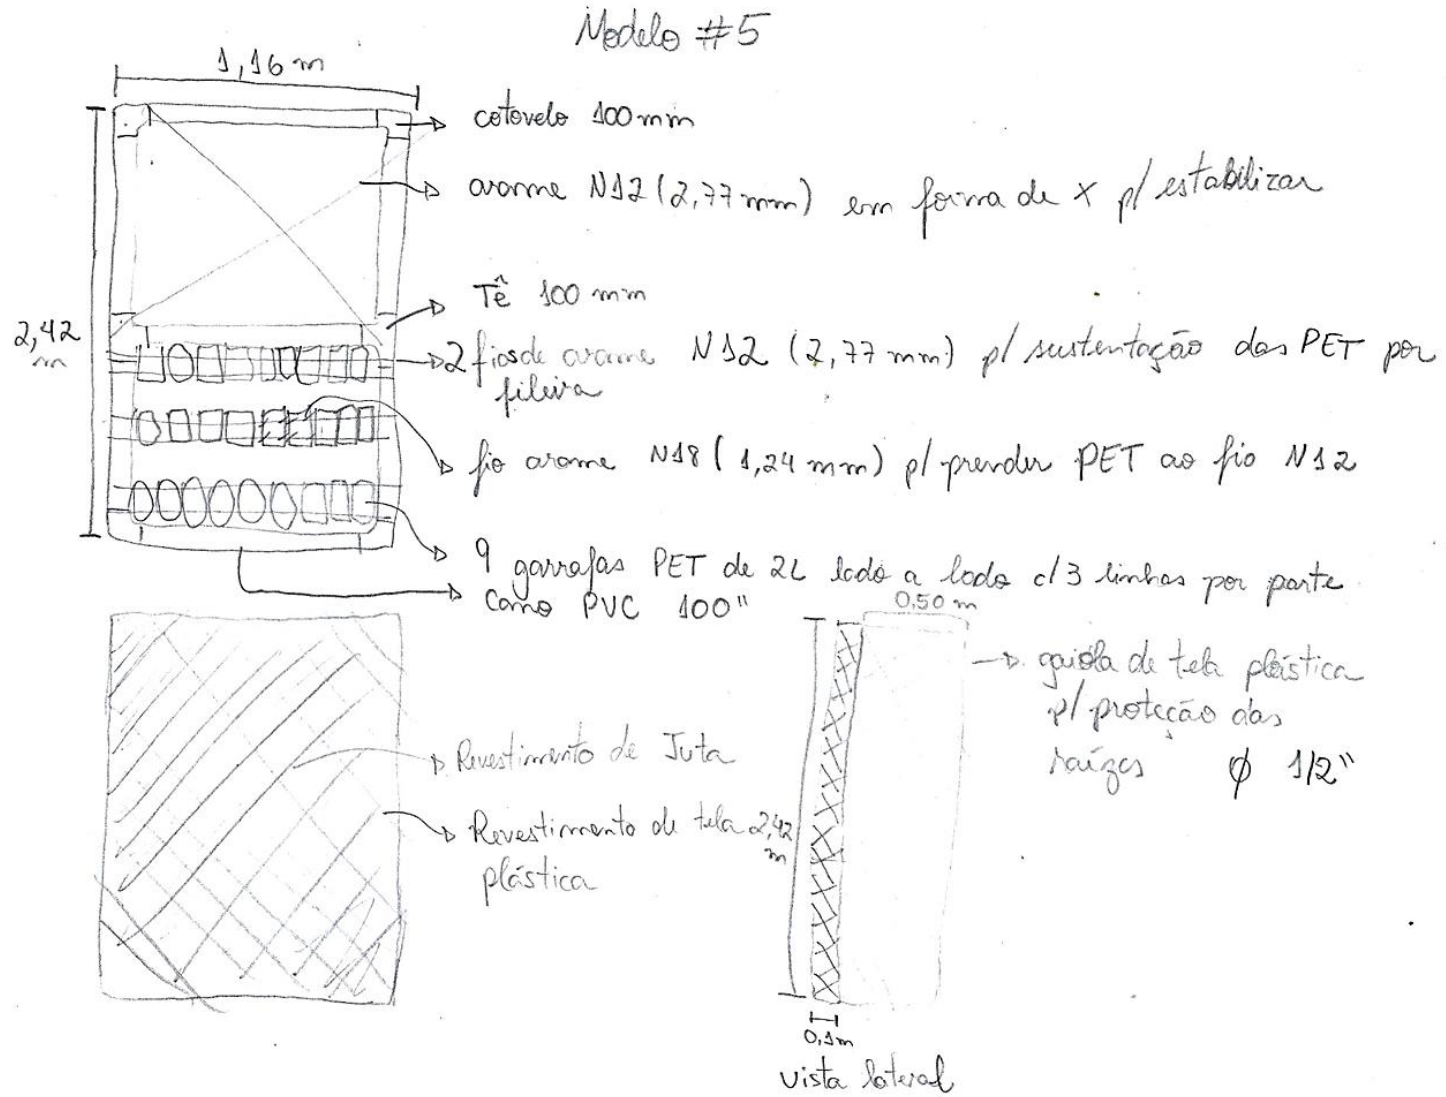 Modelo #5
1,16 m
cotovelo 100 mm
arame N12 (2,77 mm) em forma de X p/ estabilizar
Tê 100 mm
2,42
m
2 fios de arame N12 (2,77 mm) p/ sustentação das PET por
fileira
fio arame N18 (1,24 mm) p/ prender PET ao fio N12
9 garrafas PET de 2L lado a lado c/ 3 linhas por parte
Cano PVC 100"
0,50 m
gaiola de tela plástica
p/ proteção das
raízes ϕ 1/2"
Revestimento de Juta
Revestimento de tela
plástica
2,42
m
0,1m
vista lateral